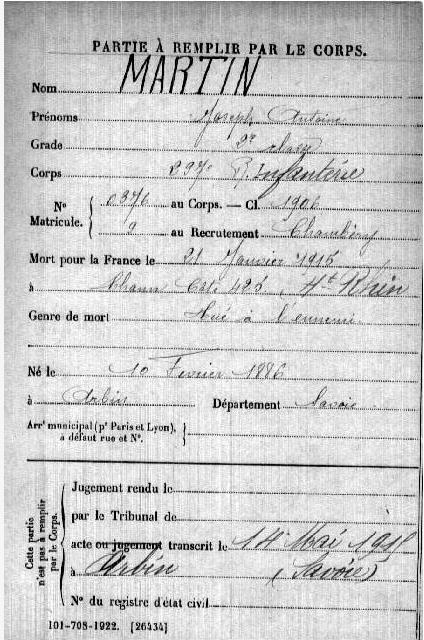 PARTIE À REMPLIR PAR LE CORPS.
Nom MARTIN
Prénoms Joseph Antoine
Grade 2e classe
Corps 297e R. Infanterie
N° Matricule. { 0376 au Corps. — Cl. 1906
9 au Recrutement Chambéry
Mort pour la France le 21 Janvier 1915
à Thann Cote 425, Ht Rhin
Genre de mort Tué à l'ennemi
Né le 10 Février 1886
à Arbin Département Savoie
Arrt municipal (pr Paris et Lyon), à défaut rue et N°. }
Cette partie n'est pas à remplir par le Corps.
Jugement rendu le
par le Tribunal de
acte ou jugement transcrit le 14 Mai 1915
à Arbin (Savoie)
N° du registre d'état civil
101-708-1922. [26434]